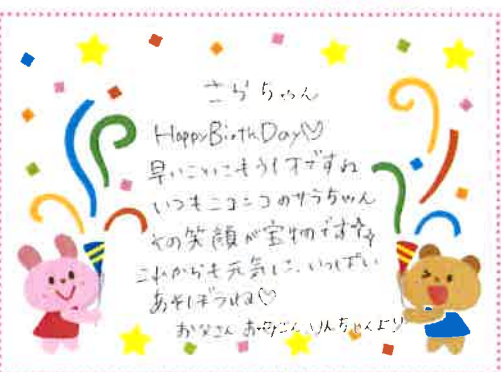 さらちゃん
Happy Birth Day♡
早いこいこもう1才ですね
いつもニコニコのサラちゃん
その笑顔が宝物です☆☆
これからも元気に、いっぱい
あそぼうね♡
お父さん お母さん りんちゃんより